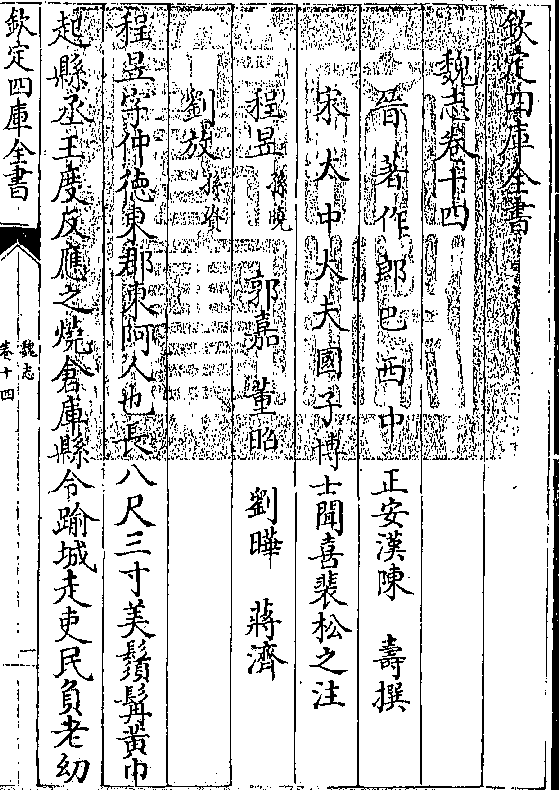 欽定四庫全書
魏志卷十四
晉著作郎巴西中正安漢陳壽撰
宋太中大夫國子博士聞喜裴松之注
程昱孫曉 郭嘉 董昭 劉曄 蔣濟
劉放孫資
程昱字仲德東郡東阿人也長八尺三寸美鬚髯黃巾
起縣丞王度反應之燒倉庫縣令踰城走吏民負老幼
欽定四庫全書
魏志
卷十四
一